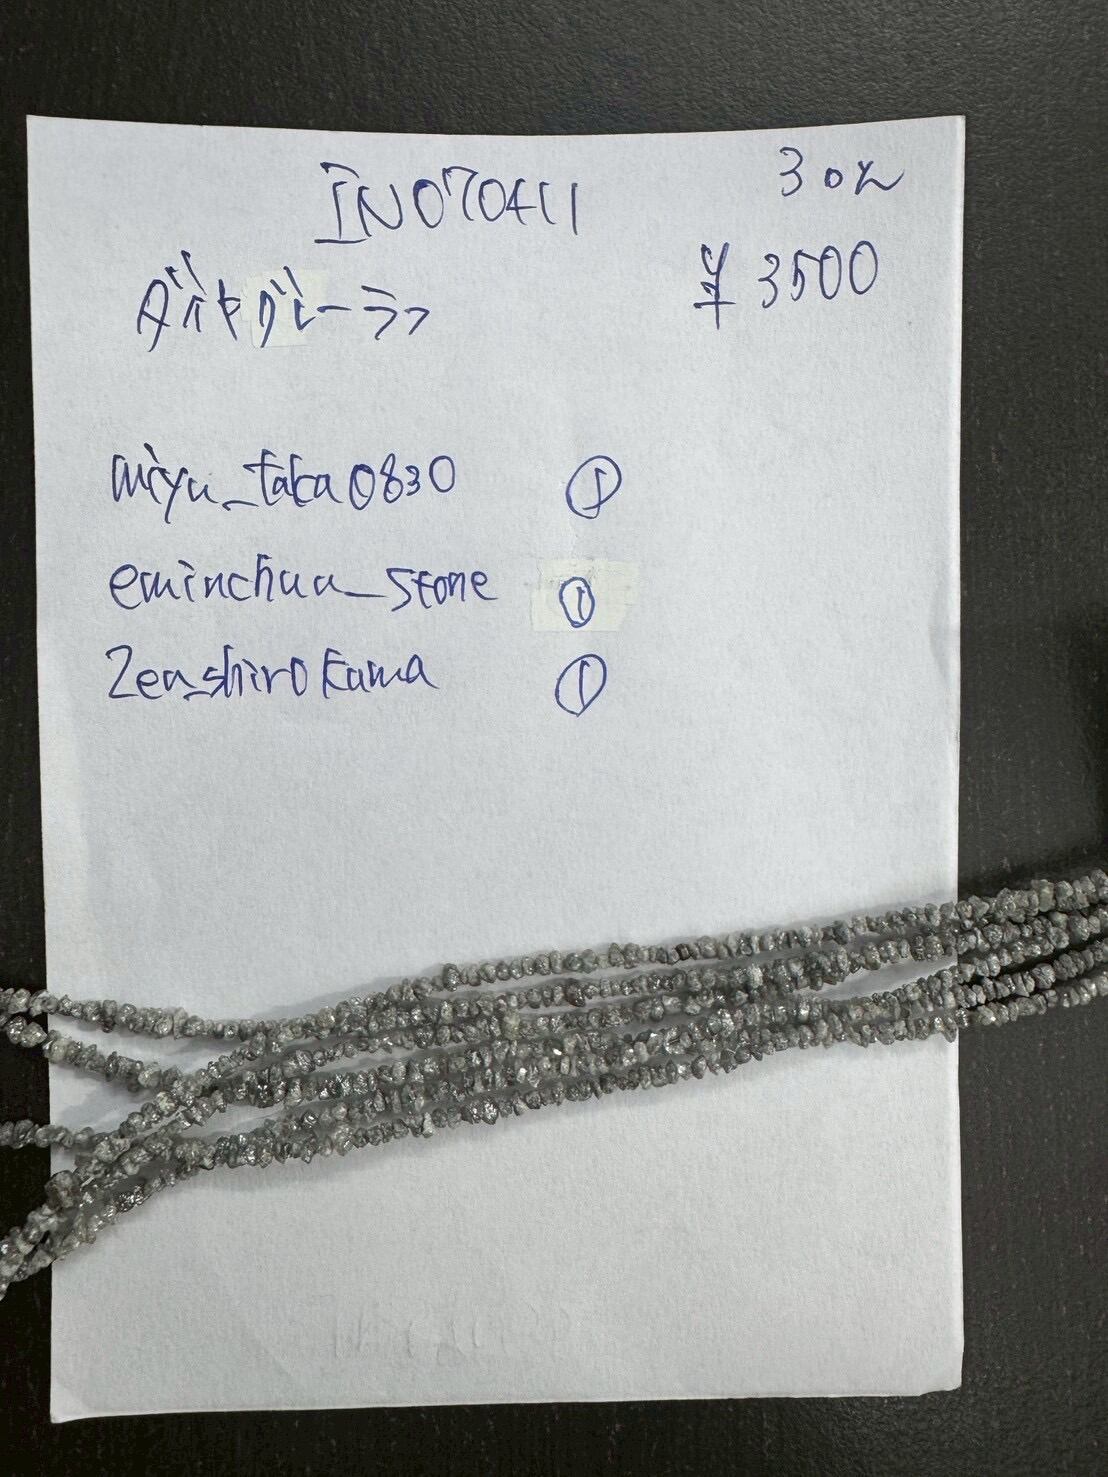 IN070411
30%
ダイヤグレーラフ
¥3500
miyu_taka0830 ①
eminchuu_stone ①
Zen_shirokuma ①